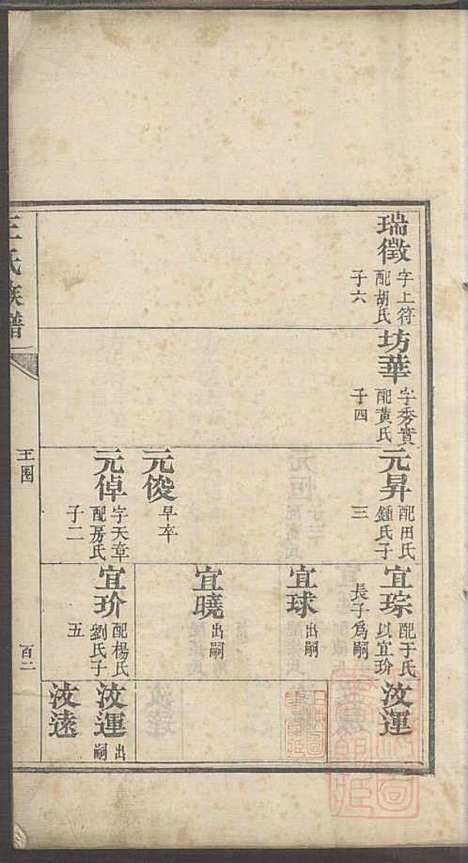 瑞徵
字上符
配胡氏
子六
坊華
字秀實
配黃氏
子四
元昇
配田氏
鍾氏子
三
元俊
早卒
元倬
字天章
配房氏
子二
宜琮
配于氏
以宜玠
長子為嗣
宜球
出嗣
宜曉
出嗣
宜玠
配楊氏
劉氏子
五
汝運
汝運
出
嗣
汝遠
王氏族譜
王圖
百二